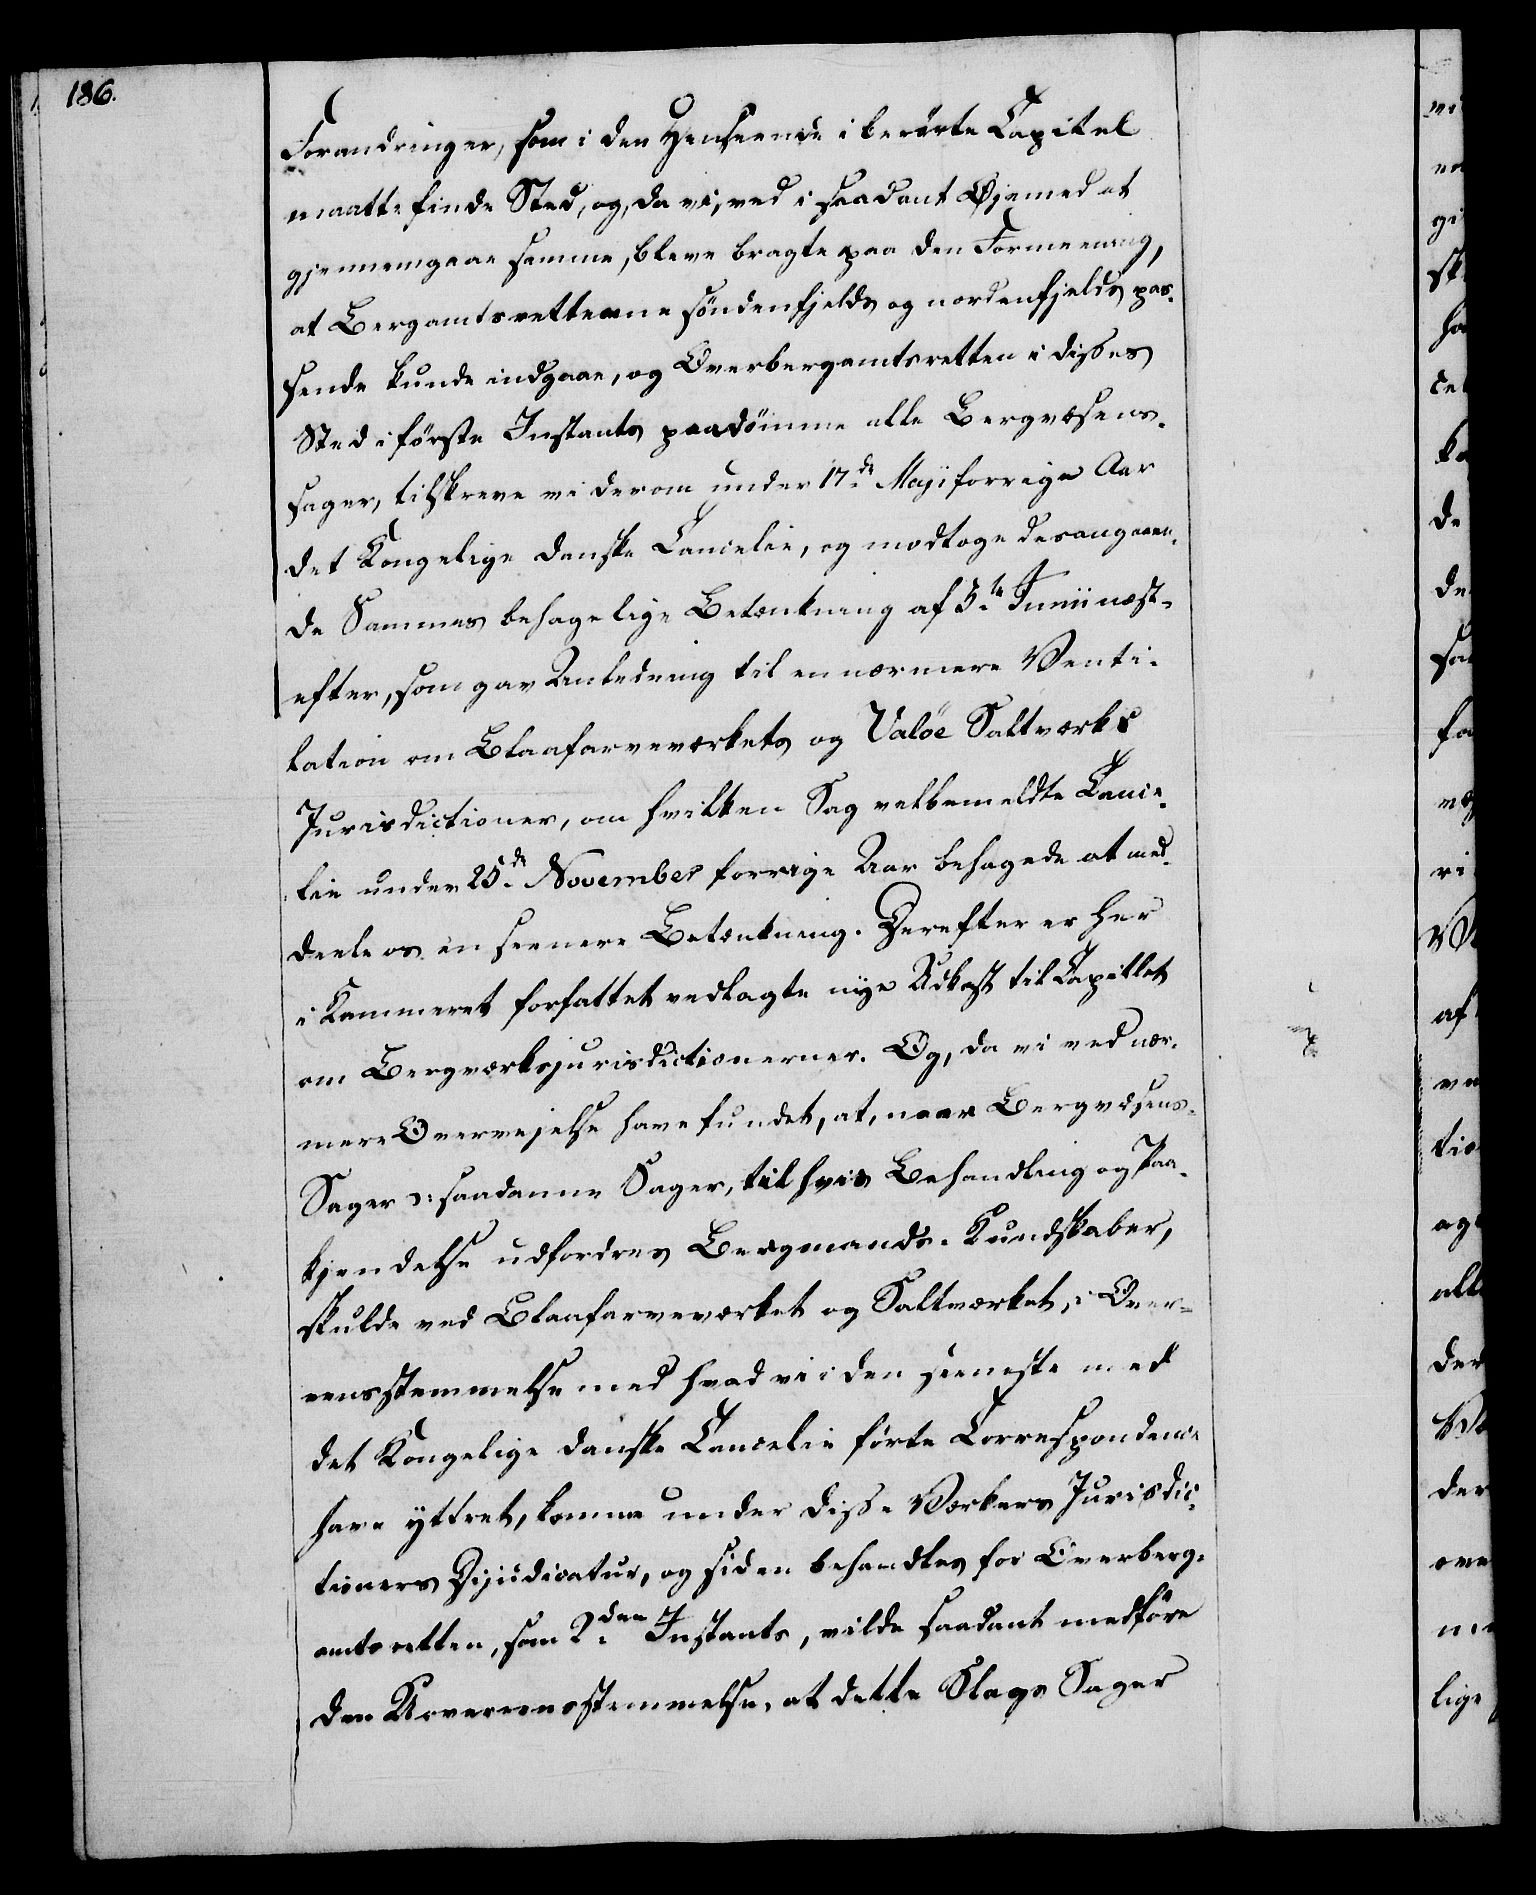 186.
Forandringer, som i den Henseende i berørte Capitel
maatte finde Sted, og, da vi, ved i saadant Øjemed at
gjennemgaae samme, bleve bragte paa den Formeening,
at Bergamtsretterne söndenfjelds og nordenfjelds pas-
sende kunde indgaae, og Overbergamtsretten i disses
Sted i første Instants paadömme alle Bergvæsens-
sager, tilskreve vi derom under 17de Maji forrige Aar
det Kongelige danske Cancelie, og modtoge desangaaen-
de Sammes behagelige Betænkning af 3te Junii næst-
efter, som gav Anledning til en nærmere Venti-
lation om Blaafarveværkets og Valöe Saltværks
Jurisdictioner, om hvilken Sag velbemeldte Cance-
lie under 25de November forrige Aar behagede at med-
deele os en seenere Betænkning. Derefter er her
i Kammeret forfattet vedlagte nye Udkast til Capitlet
om Bergværksjurisdictionerner. Og, da vi ved nær-
mere Overvejelse have fundet, at, naar Bergvæsens-
Sager ɔ: saadanne Sager, til hvis Behandling og Paa-
kjendelse udfordres Bergmands-Kundskaber,
skulde ved Blaafarveværket og Saltværket, i Over-
eensstemmelse med hvad vi i den seeneste med
det Kongelige danske Cancelie førte Correspondence
have yttret, komme under disse Værkers Jurisdic-
tioners Dijudicatur, og siden behandles for Overberg-
amtsretten, som 2den Instants, vilde saadant medføre
den Uovereensstemmelse, at dette Slags Sager